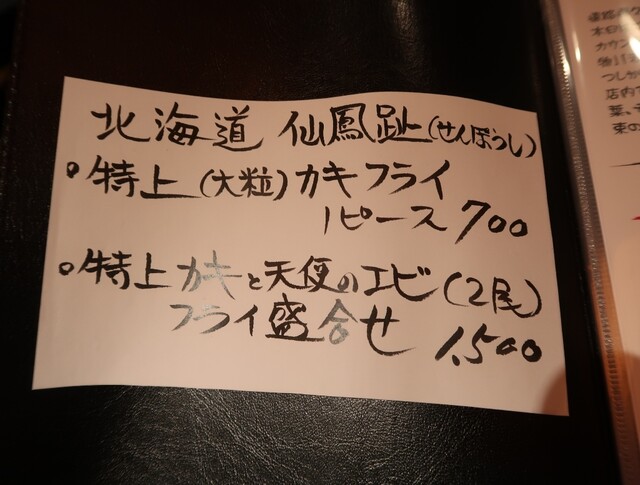 北海道 仙鳳趾(せんぽうし)
・特上(大粒)カキフライ
1ピース 700
・特上カキと天使のエビ(2尾)
フライ盛合せ 1,500
本日
カウン
つしか
店内で
葉、
束の